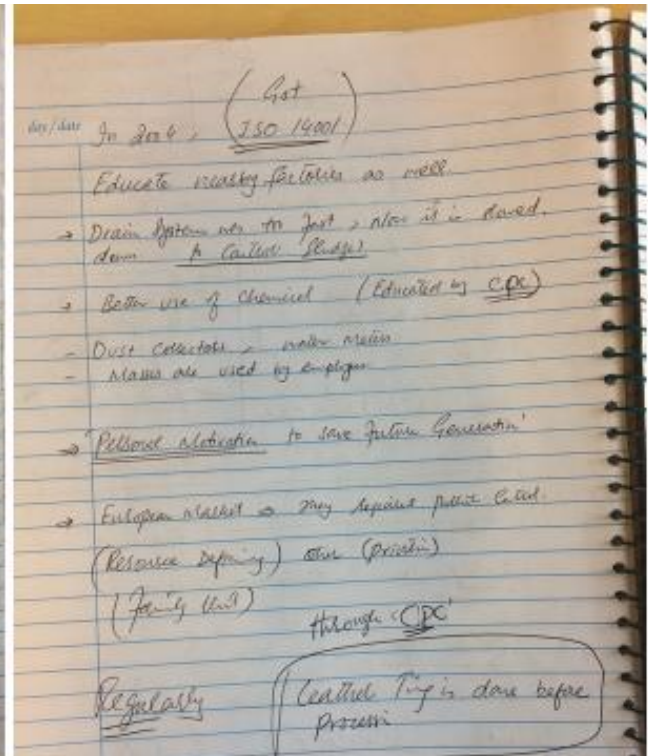 day/date
Got
In 2004, (ISO 14001)
Educate nearby factories as well.
→ Drain System was too fast, Now it is slowed
down
→ Better use of Chemical (Educated by CPC)
- Dust Collectors, water meters
- Masks are used by employees
⇒ "Personal Motivation to save future Generation"
→ European Market ⇒ They required
(Resource) (
(Family Unit)
through "CPC"
Regularly
Leather is done before